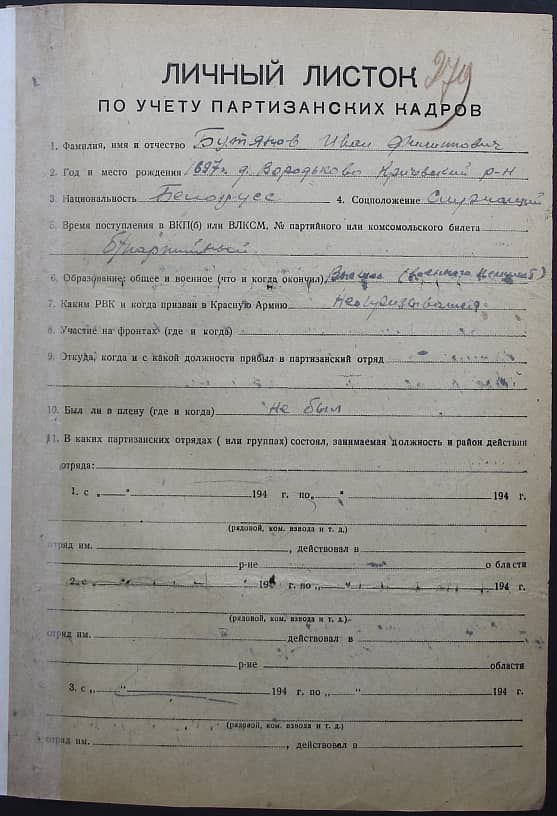 279
ЛИЧНЫЙ ЛИСТОК
ПО УЧЕТУ ПАРТИЗАНСКИХ КАДРОВ
1. Фамилия, имя и отчество Бутяков Иван Филиппович
2. Год и место рождения 1897г. д. Вородьково Кричевский р-н
3. Национальность Белорусс 4. Соцположение Служащий
5. Время поступления в ВКП(б) или ВЛКСМ, № партийного или комсомольского билета
б/партийный
6. Образование: общее и военное (что и когда окончил)
7. Каким РВК и когда призван в Красную Армию Не призывался
8. Участие на фронтах (где и когда)
9. Откуда, когда и с какой должности прибыл в партизанский отряд
10. Был ли в плену (где и когда) не был
11. В каких партизанских отрядах ( или группах) состоял, занимаемая должность и район действия
отряда:
1. с „ “ 194 г. по „ “ 194 г.
(рядовой, ком. взвода и т. д.)
отряд им. , действовал в
р-не области
2. с „ “ 194 г. по „ “ 194 г.
(рядовой, ком. взвода и т. д.)
отряд им. действовал в
р-не области
3. с „ “ 194 г. по „ “ 194 г.
(рядовой, ком. взвода и т. д.)
отряд им. , действовал в